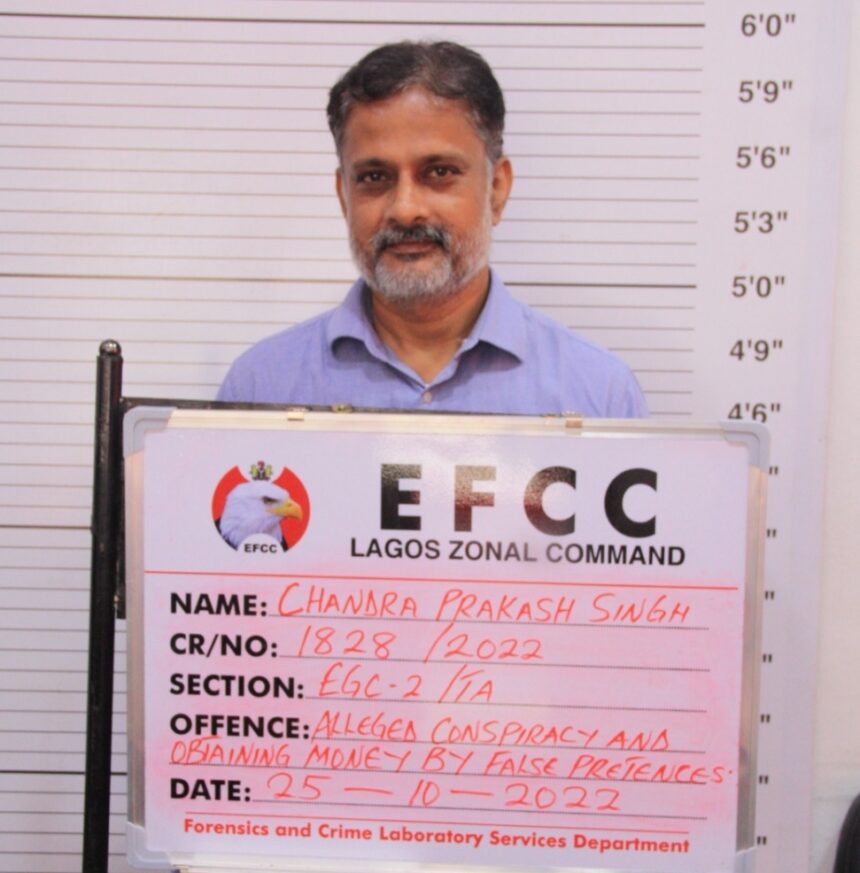 6'0"
5'9"
5'6"
5'3"
5'0"
4'9"
4'6"
EFCC
EFCC
LAGOS ZONAL COMMAND
NAME: CHANDRA PRAKASH SINGH
CR/NO: 1828 /2022
SECTION: EGC-2 /TA
OFFENCE: ALLEGED CONSPIRACY AND
OBTAINING MONEY BY FALSE PRETENCES.
DATE: 25 — 10 — 2022
Forensics and Crime Laboratory Services Department